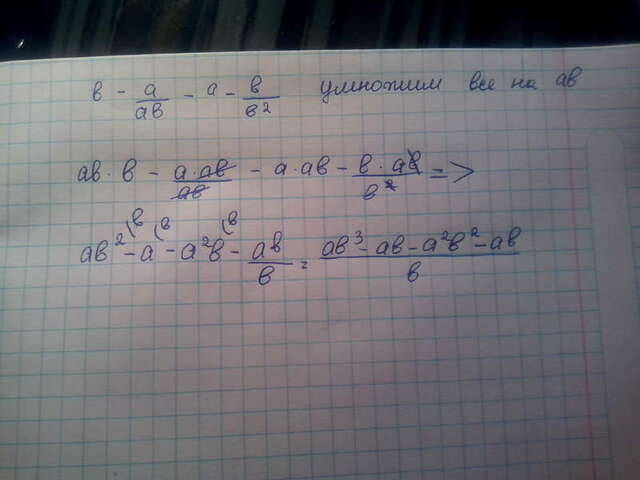 в - a/aв - a - в/в² умножим все на aв
aв · в - a·aв/aв - a·aв - в·aв/в² =>
aв² - a - a²в - aв/в = aв³ - aв - a²в² - aв/в